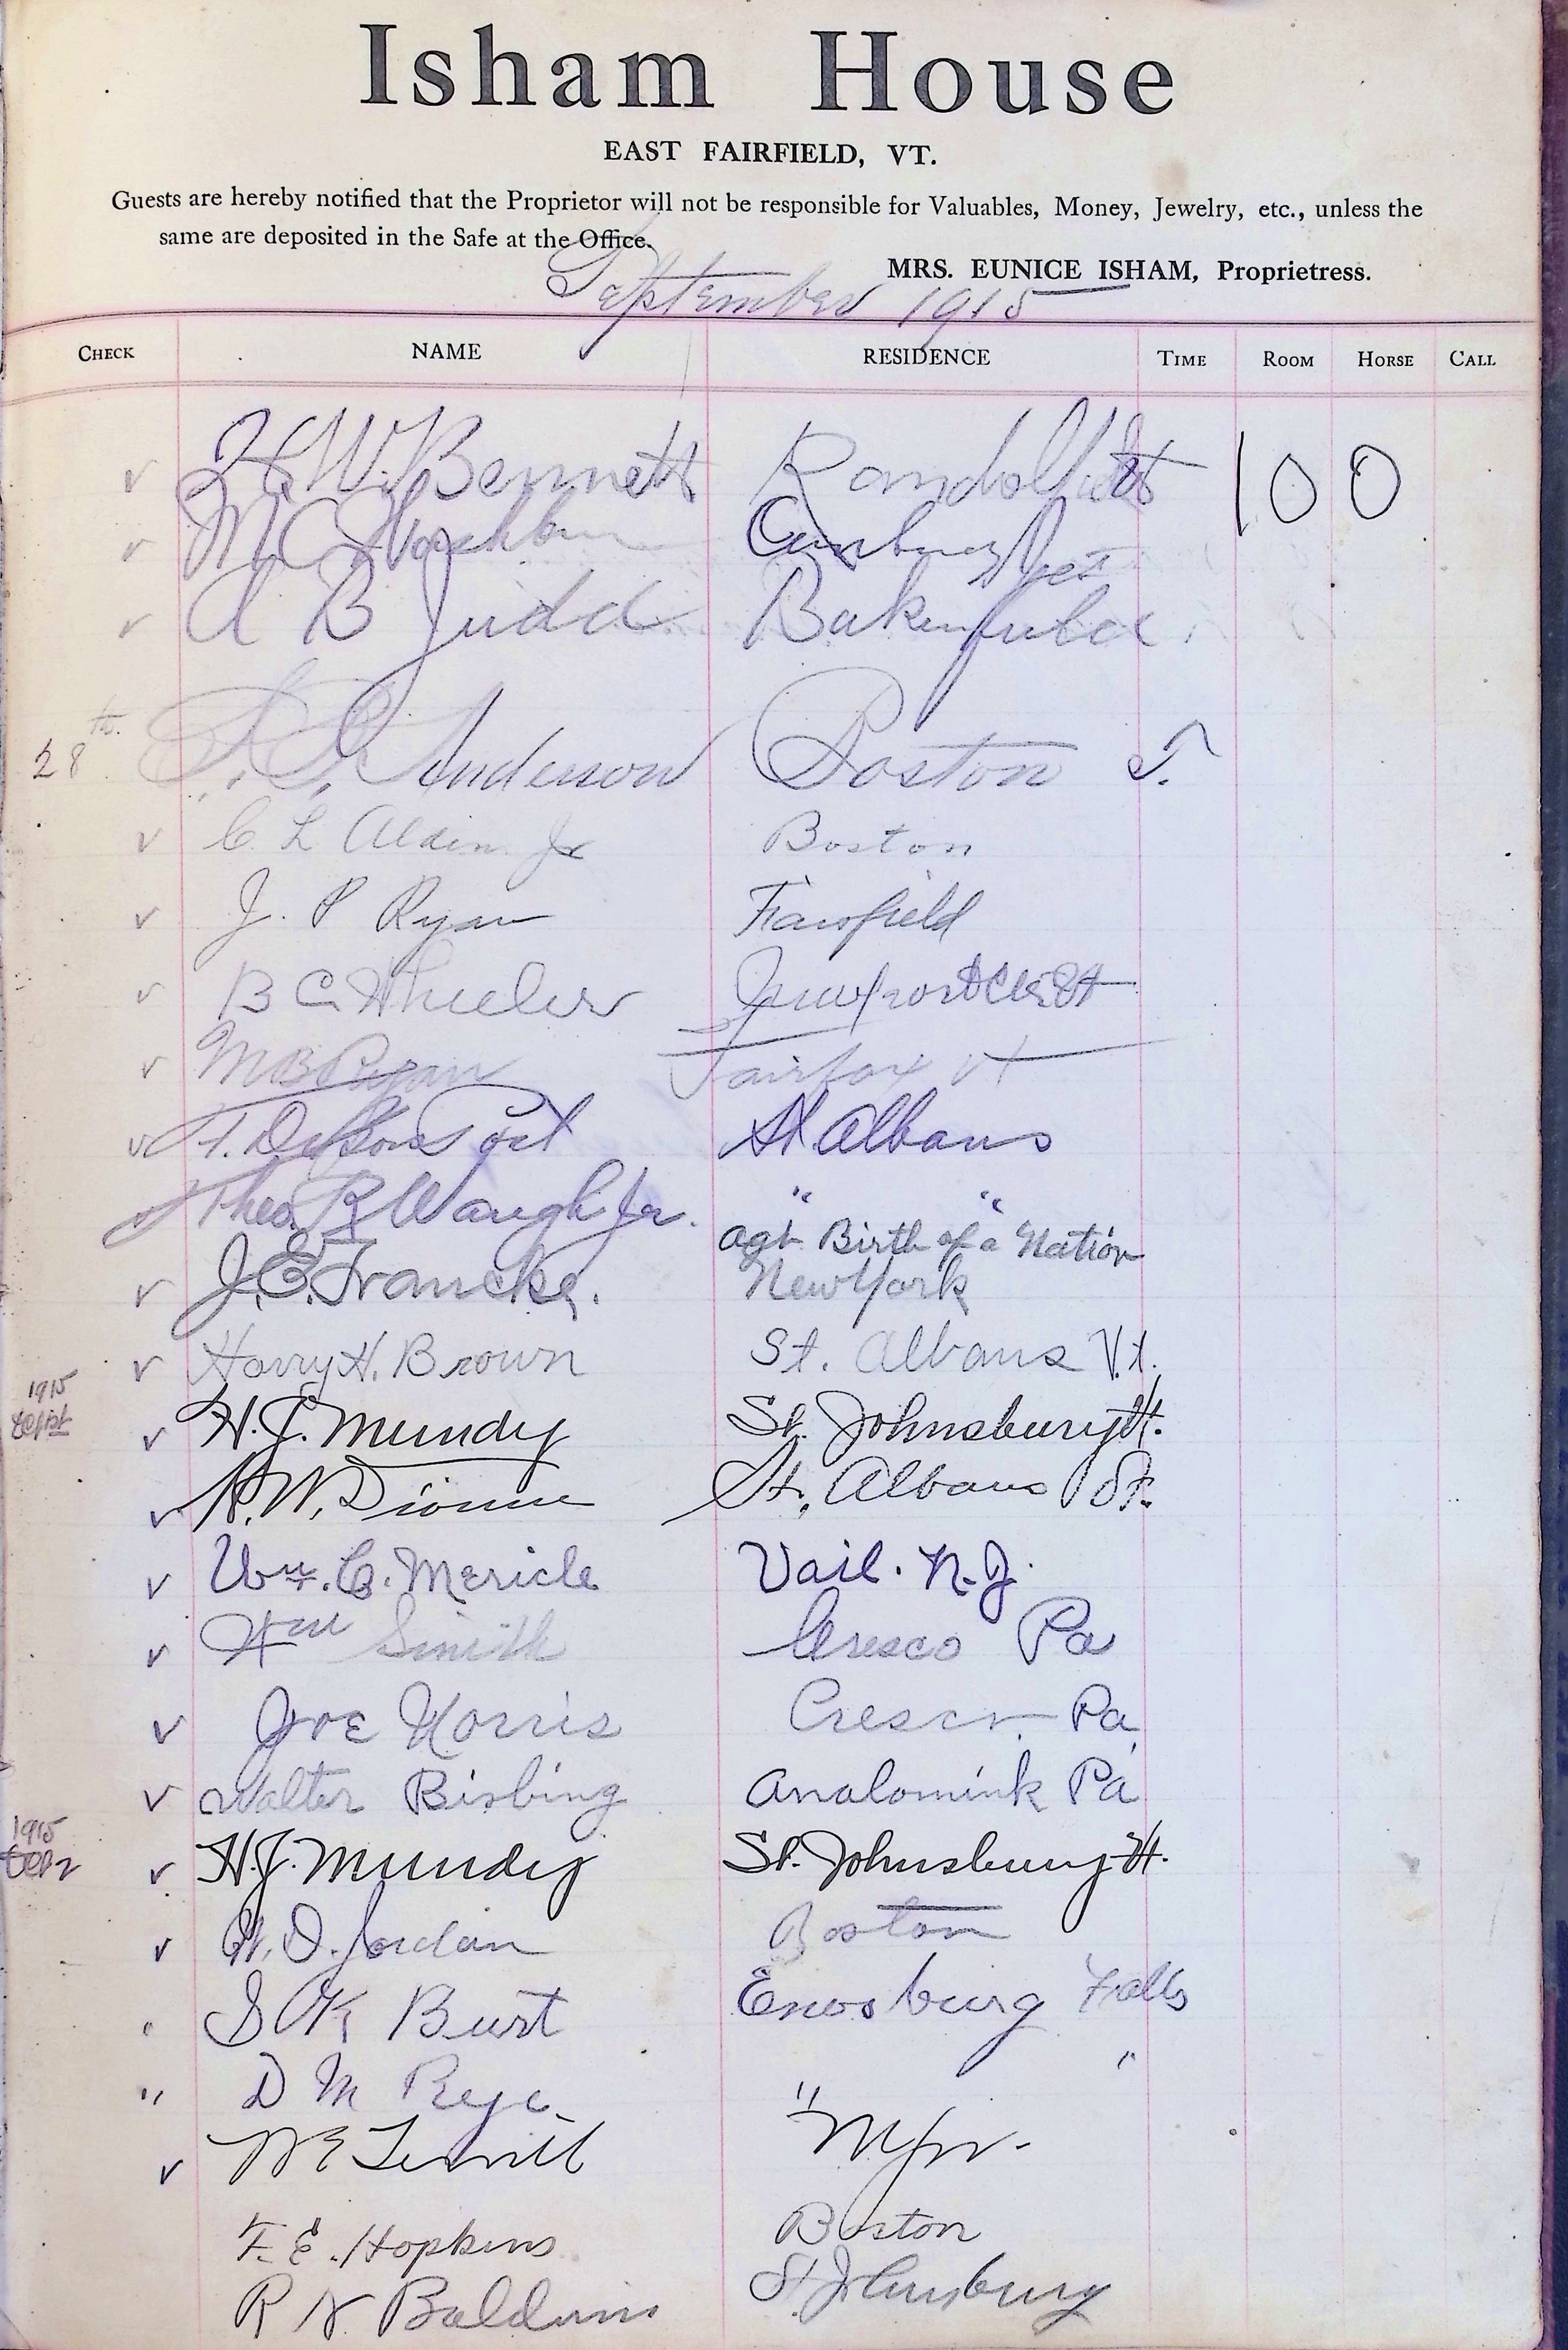 Isham House
EAST FAIRFIELD, VT.
Guests are hereby notified that the Proprietor will not be responsible for Valuables, Money, Jewelry, etc., unless the
same are deposited in the Safe at the Office.
MRS. EUNICE ISHAM, Proprietress.
September 1915
CHECK NAME RESIDENCE TIME ROOM HORSE CALL
H W. Bennett Randolph Vt 100
M C Washburn
A B Judd Bakersfield
28th. Anderson Boston T.
C. L Alden Jr Boston
J. P Ryan Fairfield
B C Wheeler Newport
M B Ryan Fairfax Vt
St Albans
Theo. R Waugh Jr. " "
agt Birth of a Nation
J. E. Francke. New York
Harry H. Brown St. Albans Vt.
1915
Sept
H. J. Mundy St. Johnsbury Vt.
H. W. Dionne St. Albans Vt.
Wm. C. Mericle Vail. N.J.
Wm Smith Cresco Pa
Joe Norris Cresco. Pa
Walter Bisbing Analomink Pa
1915
Sep 2
H. J. Mundy St. Johnsbury Vt.
W. D. Jordan Boston
S K Burt Enosburg Falls
" D M " "
F. E. Hopkins Boston
R N Baldwin St Johnsbury